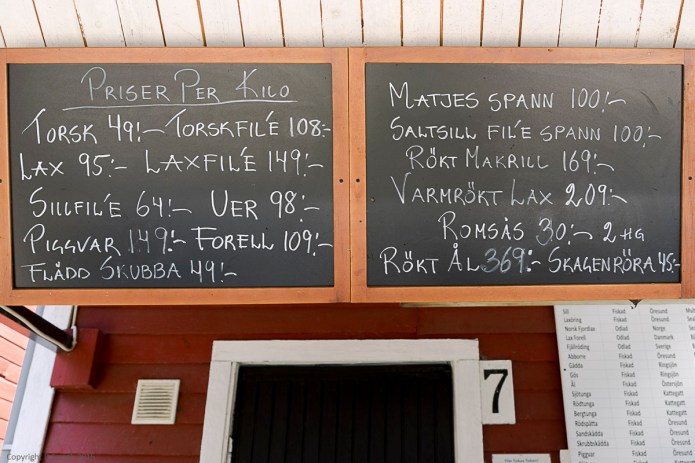 PRISER PER KILO
TORSK 49:- TORSKFILÉ 108:-
LAX 95:- LAXFILÉ 149:-
SILLFILÉ 64:- UER 98:-
PIGGVAR 149:- FORELL 109:-
FLÅDD SKUBBA 49:-
MATJES SPANN 100:-
SALTSILL FILÉ SPANN 100:-
RÖKT MAKRILL 169:-
VARMRÖKT LAX 209:-
ROMSÅS 30:- 2 HG
RÖKT ÅL 369:- SKAGENRÖRA 45:-
Sill Fiskad Öresund
Laxöring Fiskad Öresund
Norsk Fjordlax Odlad Norge
Lax Forell Odlad Danmark
Fjällröding Odlad Sverige
Abborre Fiskad Ringsjön
Gädda Fiskad Ringsjön
Gös Fiskad Ringsjön
Ål Fiskad Östersjön
Sjötunga Fiskad Kattegatt
Rödtunga Fiskad Kattegatt
Bergtunga Fiskad Kattegatt
Rödspätta Fiskad Öresund
Sandskädda Fiskad Öresund
Skrubbskädda Fiskad Öresund
Piggvar Fiskad Öresund
7
Copyright